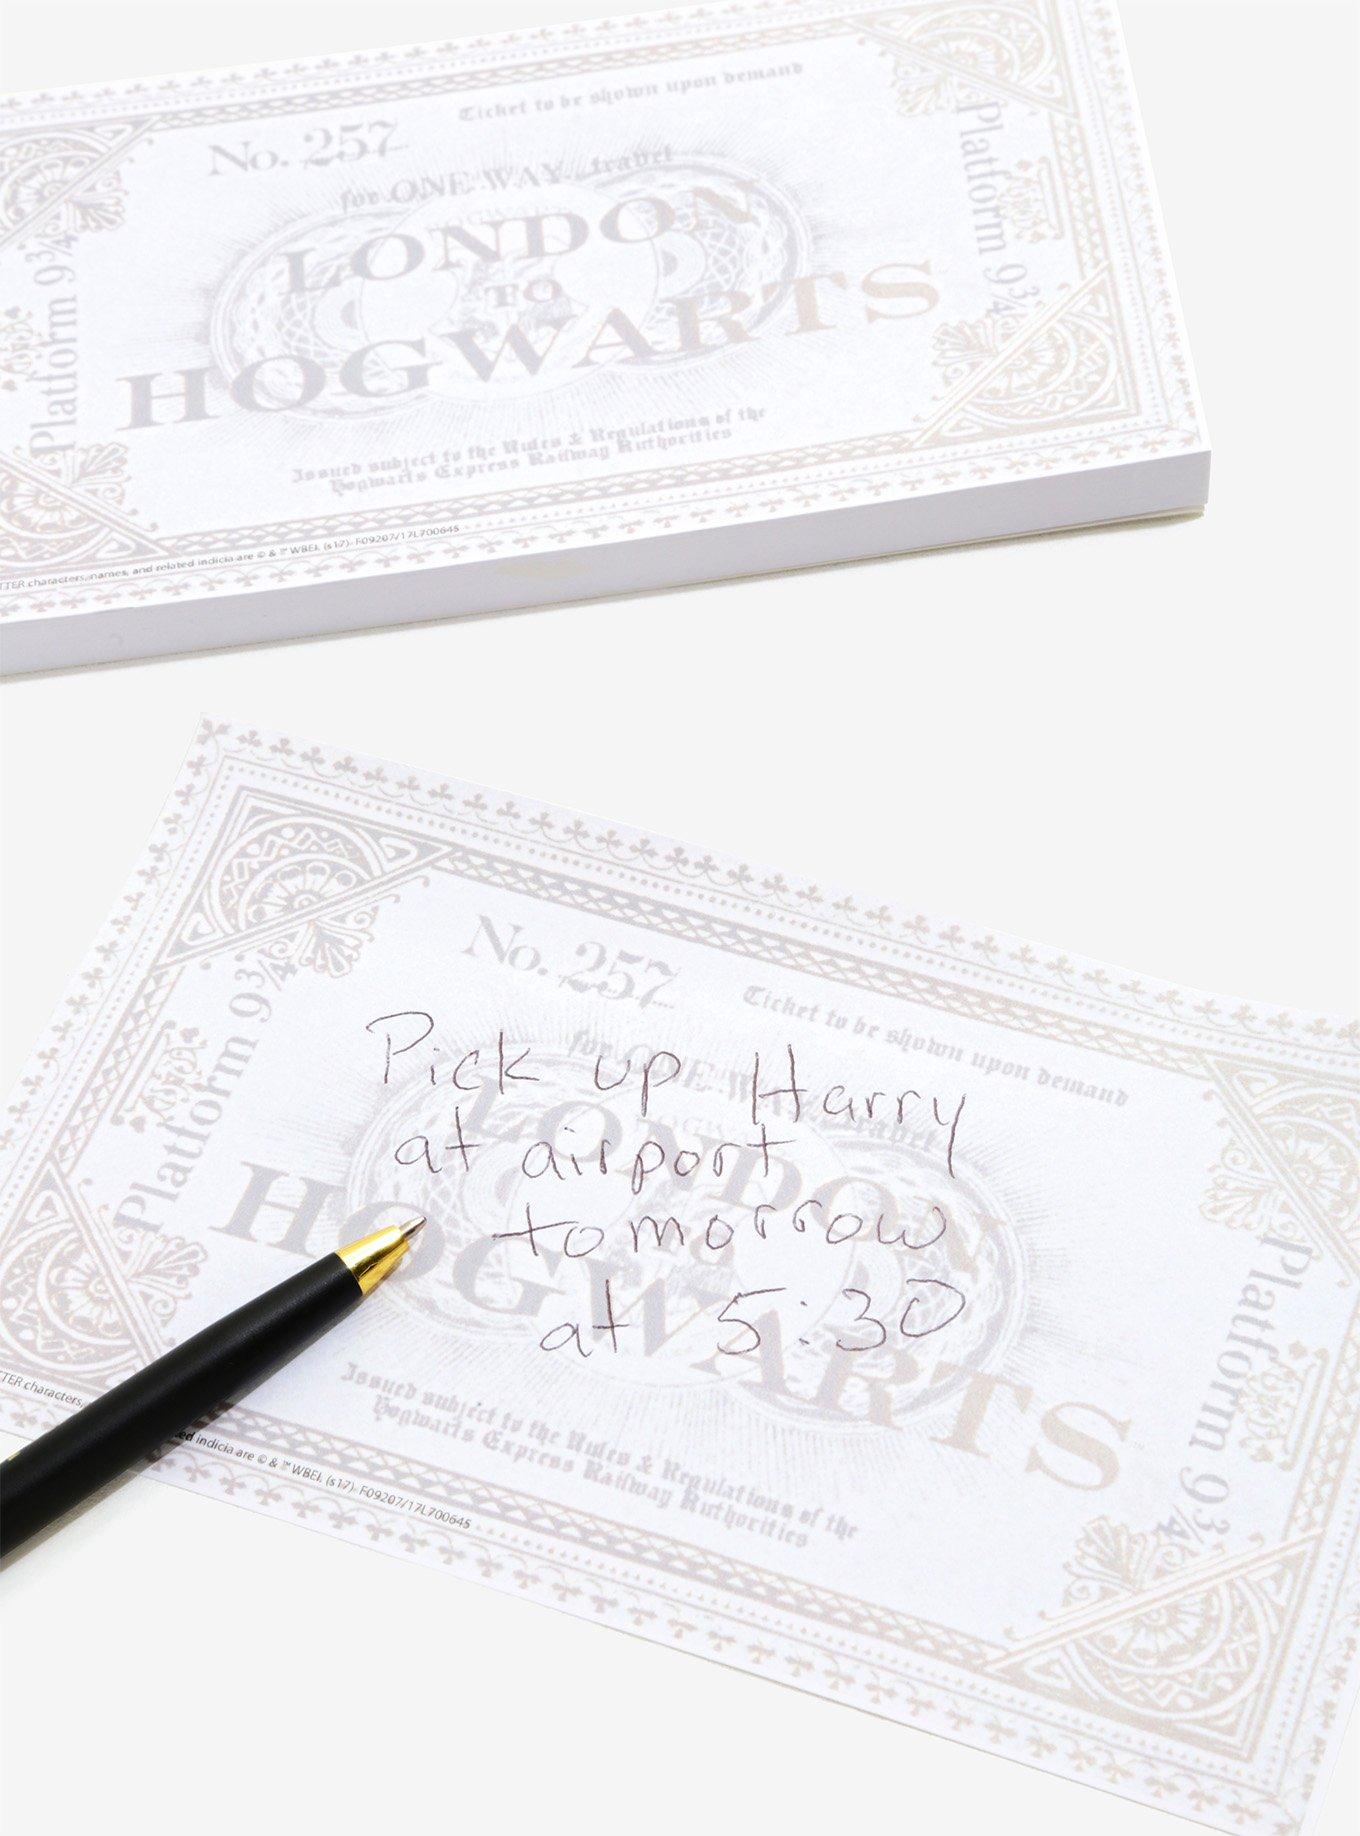 No. 257
Ticket to be shown upon demand
for ONE WAY travel
LONDON
TO
HOGWARTS
Platform 9¾
Platform 9¾
Issued subject to the Rules & Regulations of the
Hogwarts Express Railway Authorities
TTER characters, names, and related indicia are © & ™ WBEI. (s17) F09207/17L700645
No. 257
Ticket to be shown upon demand
for ONE WAY travel
LONDON
HOGWARTS
Platform 9¾
Platform 9¾
Pick up Harry
at airport
tomorrow
at 5:30
Issued subject to the Rules & Regulations of the
Hogwarts Express Railway Authorities
TER characters, ed indicia are © & ™ WBEI. (s17) F09207/17L700645